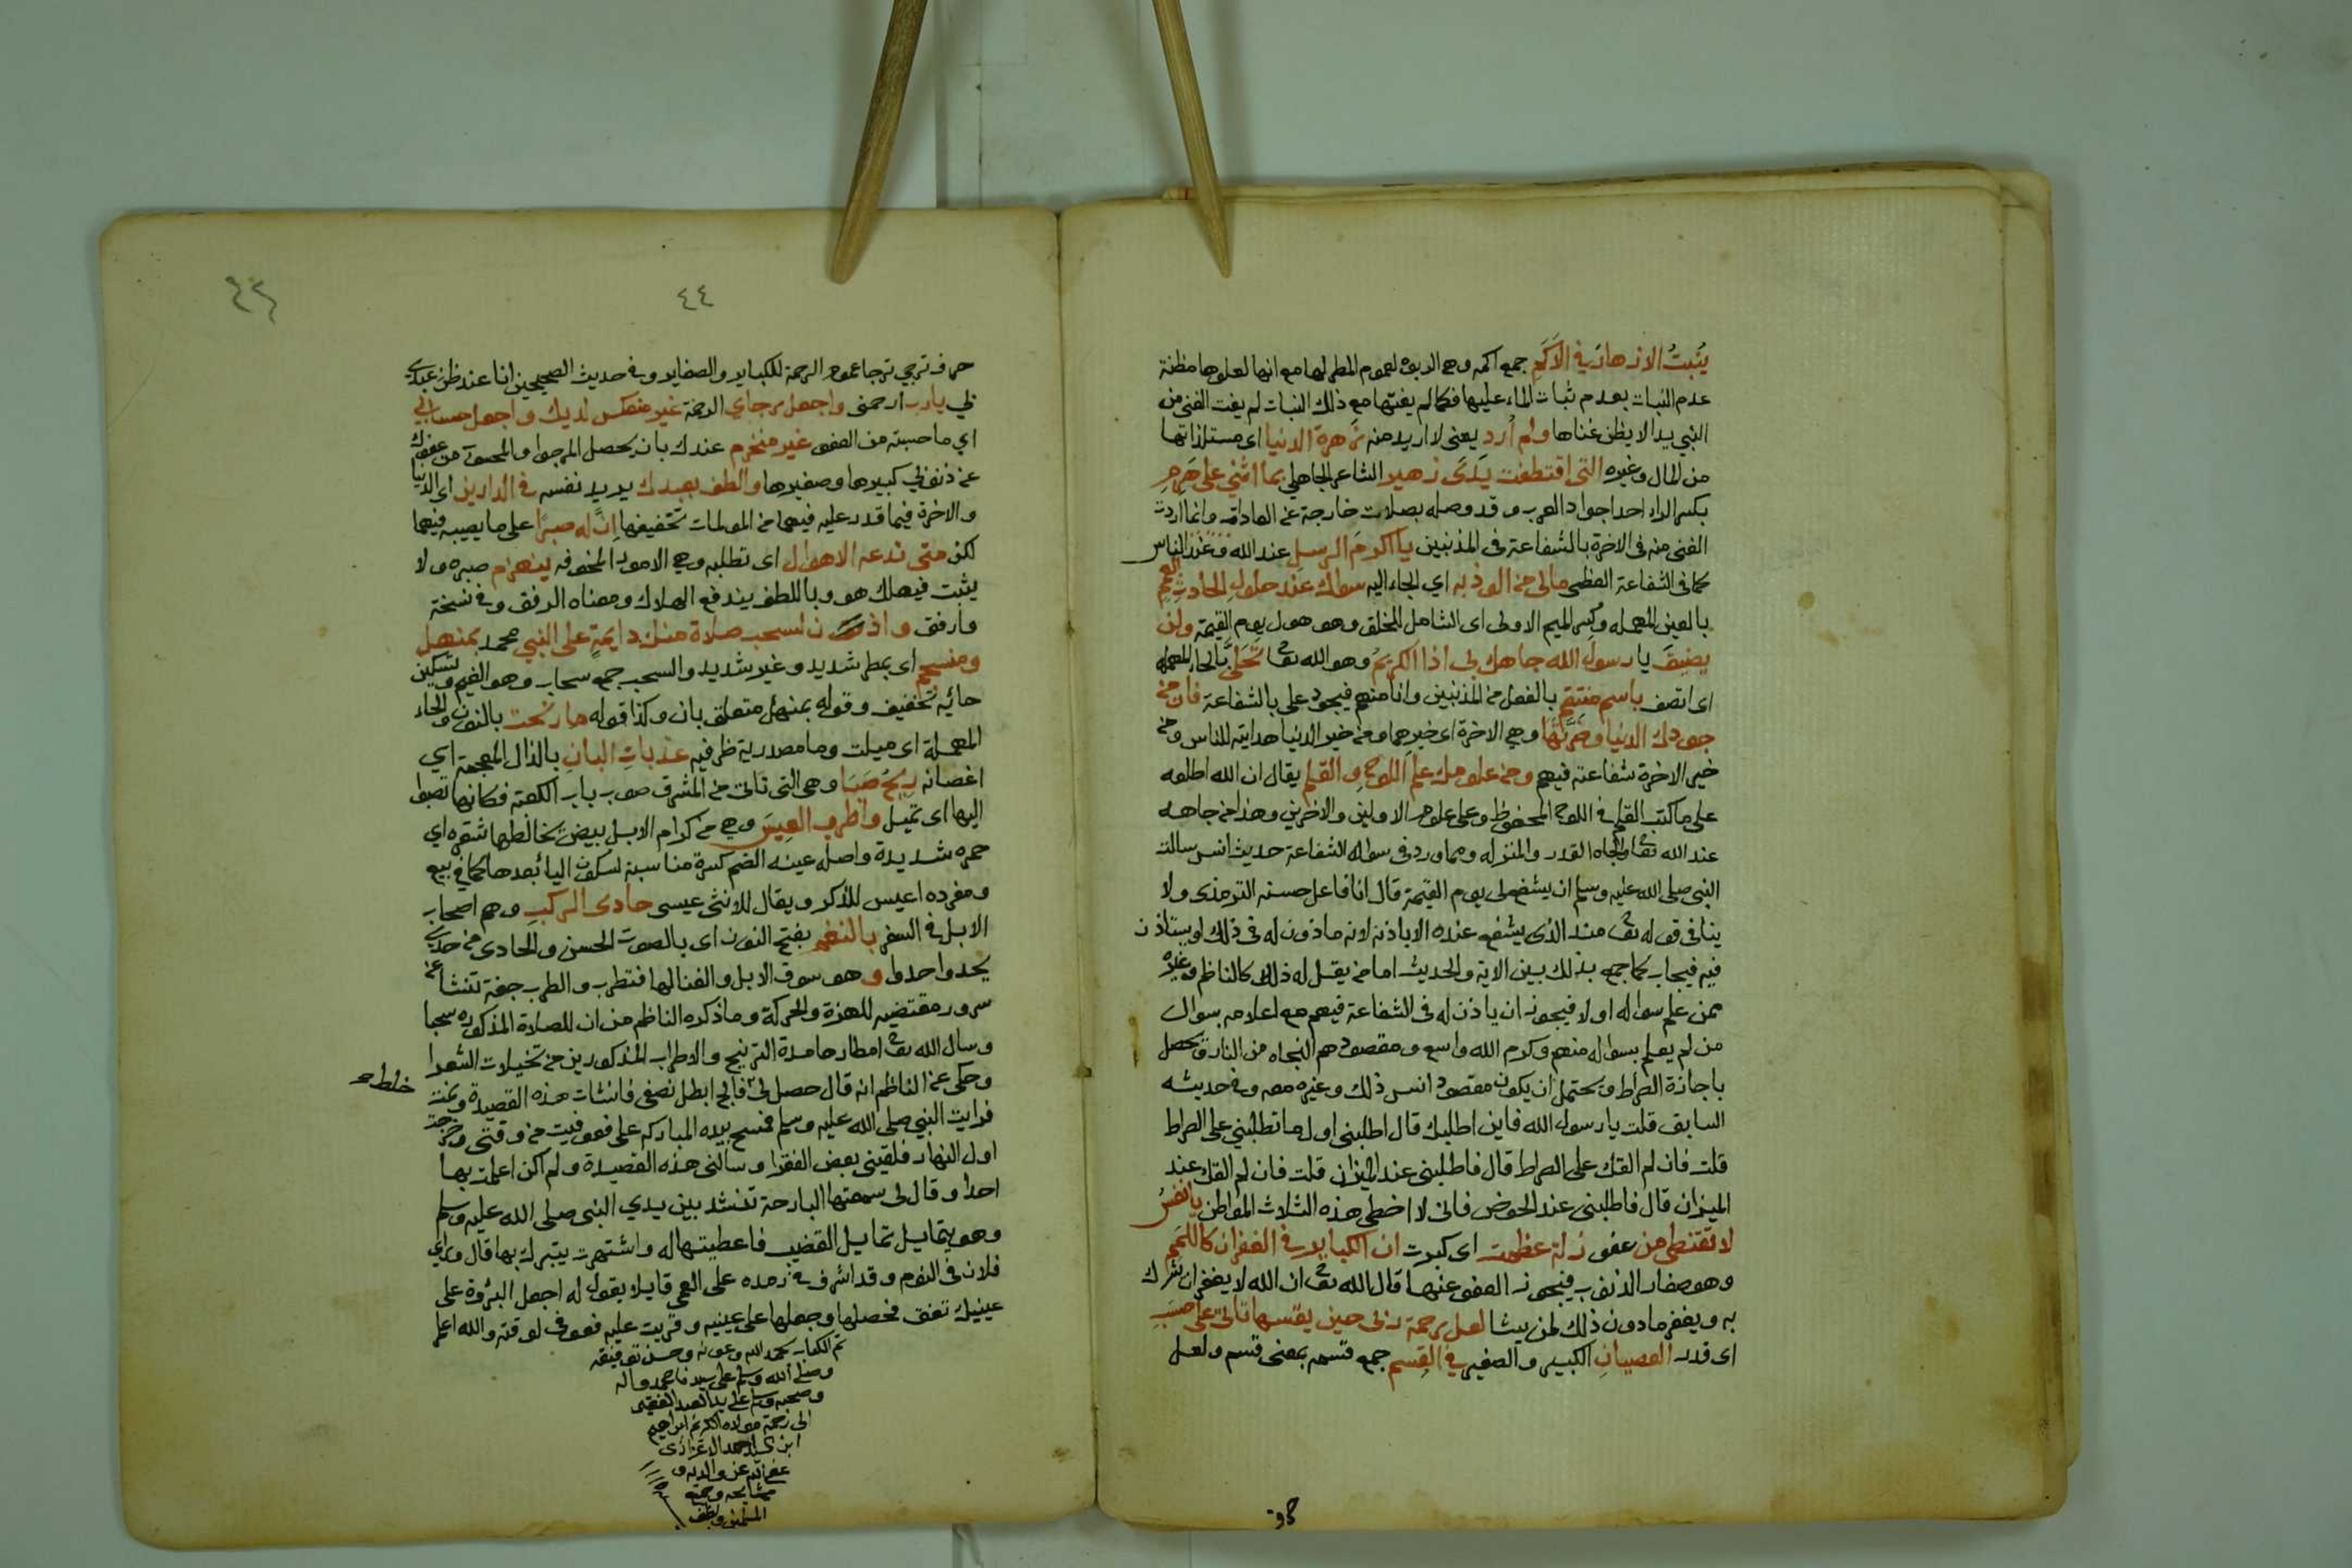 يُنبتُ الازهارَ في الاَكَمِ جمع اكمه وهي الربوة لعموم المطر لها مع انها لعلوها مظنة
عدم النبات بعدم ثبات الماء عليها فكما لم يفتها مع ذلك النبات لم يفت الغنى من
النبي يدا لا يظن غناها ولم اُرِد يعني لا اريد منه زهرة الدنيا اى مستلذاتها
من المال وغيره التى اقتطفت يَدَى زهير الشاعر الجاهلي بما اثني على هَرِمِ
بكسر الراء احد اجواد العرب وقد وصله بصلات خارجة عن العادات وانما اردت
الغنى منه فى الاخرة بالشفاعة فى المذنبين يا اكرم الرسل عند الله وعند الناس
كما فى الشفاعة العظمى مالى من الوذ به اي الجاء اليه سواك عند حلول الحادث العمم
بالعين المهمله وكسر الميم الاولى اى الشامل للخلق وهو هول يوم القيمة ولن
يضيق يا رسول الله جاهك بى اذا الكريمُ وهو الله تعا تَحَلىَّ بالحاء المهمله
اى اتصف باسم منتقم بالفعل من المذنبين وانا منهم فيجود على بالشفاعة فان من
جودك الدنيا وضَرَّتَها وهي الاخرة اى خيرهما ومن خير الدنيا هدايته للناس ومن
خير الاخرة شفاعته فيهم ومن علومك علم اللوح والقلم يقال ان الله اطلعه
على ما كتب القلم فى اللوح المحفوظ وعلى علوم الاولين والاخرين وهذا من جاهه
عند الله تعا والجاه القدر والمنزله ومما ورد فى سوال الشفاعة حديث انس سالت
النبي صلى الله عليه وسلم ان يشفع لى يوم القيمة قال انا فاعل حسنه الترمذى ولا
ينافى قوله تعا من ذ الذى يشفع عنده الا باذنه لانه ماذون له فى ذلك او يستاذن
فيه فيجاب كما جمع بذلك بين الاية والحديث اما من يقل له ذلك كالناظم وغيره
ممن علم سواله اولا فيجوز ان ياذن له فى الشفاعة فيهم مع اعلامه بسوال
من لم يعلم بسواله منهم وكرم الله واسع ومقصودهم النجاه من النار ويحصل
باجازة الصراط ويحتمل ان يكون مقصود انس ذلك وغيره معه وفى حديثه
السابق قلت يا رسول الله فاين اطلبك قال اطلبنى اول ما تطلبني على الصراط
قلت فان لم القك على الصراط قال فاطلبنى عند الميزان قلت فان لم القك عند
الميزان قال فاطلبنى عند الحوض فانى لا اخطى هذه الثلاث المواطن يا نفسُ
لا تقنطى من عفو زلة عظمت اى كبرت ان الكباير فى الغفران كاللمم
وهو صغار الذنوب فيجوز العفو عنها قال الله تعا ان الله لا يغفر ان يشرك
به ويغفر ما دون ذلك لمن يشا لعل رحمة ربى حين يقسمها تاتى على حسب
اى قدر العصيانِ الكبير والصغير فى القِسمِ جمع قسمه بمعنى قسم ولعل
حرف
٤٤
حرف ترجي ترجا عموم الرحمة للكباير والصغاير وفى حديث الصحيحين انا عند ظن عبدي
بي يارب ارحمنى واجعل رجاي الرحمة غير منعكس لديك واجعل حسابي
اي ما حسبته من العفو غير منخرم عندك بان يحصل المرجوا والمحسوب من عفوك
عن ذنوبي كبيرها وصغيرها والطف بعبدك يريد نفسه فى الدارين اى الدنيا
والاخرة فيما قدر عليه فيهما من المولمات تخفيفها اِنَّ له صبرًا على ما يصيبه فيهما
لكن متى تدعه الاهوال اى تطلبه وهي الامور المخوفه ينهزم صبره ولا
يثبت فيهلك هو وباللطف يندفع الهلاك ومعناه الرفق وفى نسخة
وارفق واذن لسحب صلاة منك دايمةٍ على النبي محمد بمنهل
ومنسجم اى بمطر شديد وغير شديد والسحب جمع سحاب وهو الغيم وتسكين
حائه تخفيف وقوله بمنهل متعلق باذن وكذا قوله ما رنحت بالنون والحاء
المهملة اى ميلت وما مصدرية ظرفيه عذباتِ البانِ بالذال المعجمة اي
اغصانه ريحُ صَبَا وهى التى تاتى من المشرق صوب باب الكعبة فكانها تصبوا
اليها اى تميل واطرب العِيسَ وهي من كرام الابل بيض يخالطها شقره اي
حمره شديدة واصل عينه الضم كسرة مناسبة لسكون اليا بعدها كما فى بيع
ومفرده اعيس للذكر ويقال للانثى عيسى حادى الركبِ وهم اصحاب
الابل فى السفر بالنغم بفتح النون اى بالصوت الحسن والحادى من حدى
يحدوا حدوا وهو سوق الابل والغنا لها فتطرب والطرب خفة تنشا عن
سرور مقتضيه للهزة والحركة وما ذكره الناظم من ان للصلاة المذكوره سحبا
وسال الله تعا امطارها مدة الترنيح والاطراب المذكورين من تخيلات الشعرا
وحكى عن الناظم انه قال حصل لى فالج ابطل نصفى فانشات هذه القصيدة ونمت
فرايت النبي صلى الله عليه وسلم فمسح بيده المباركه على فعوفيت من وقتى وخرجت
اول النهار فلقينى بعض الفقرا وسالنى هذه القصيدة ولم اكن اعلمت بها
احدا وقال لى سمعتها البارحة تنشد بين يدي النبى صلى الله عليه وسلم
وهو يتمايل تمايل القضيب فاعطيتها له واشتهرت يتبرك بها قال وراى
فلان فى النوم وقد اشرف فى رمده على العمى قايلا يقول له اجعل البردة على
عينيك تعفى فحصلها وجعلها على عينيه وقريت عليه فعوفى لوقته والله اعلم
تم الكتاب بحمد الله وعونه وحسن توفيقه
وصلى الله وسلم على سيدنا محمد واله
وصحبه وسلم على يد العبد الفقير
الى رحمة مولاه الكريم ابراهيم
غفر الله عنه والديه و
مشايخه وجميع
المسلمين